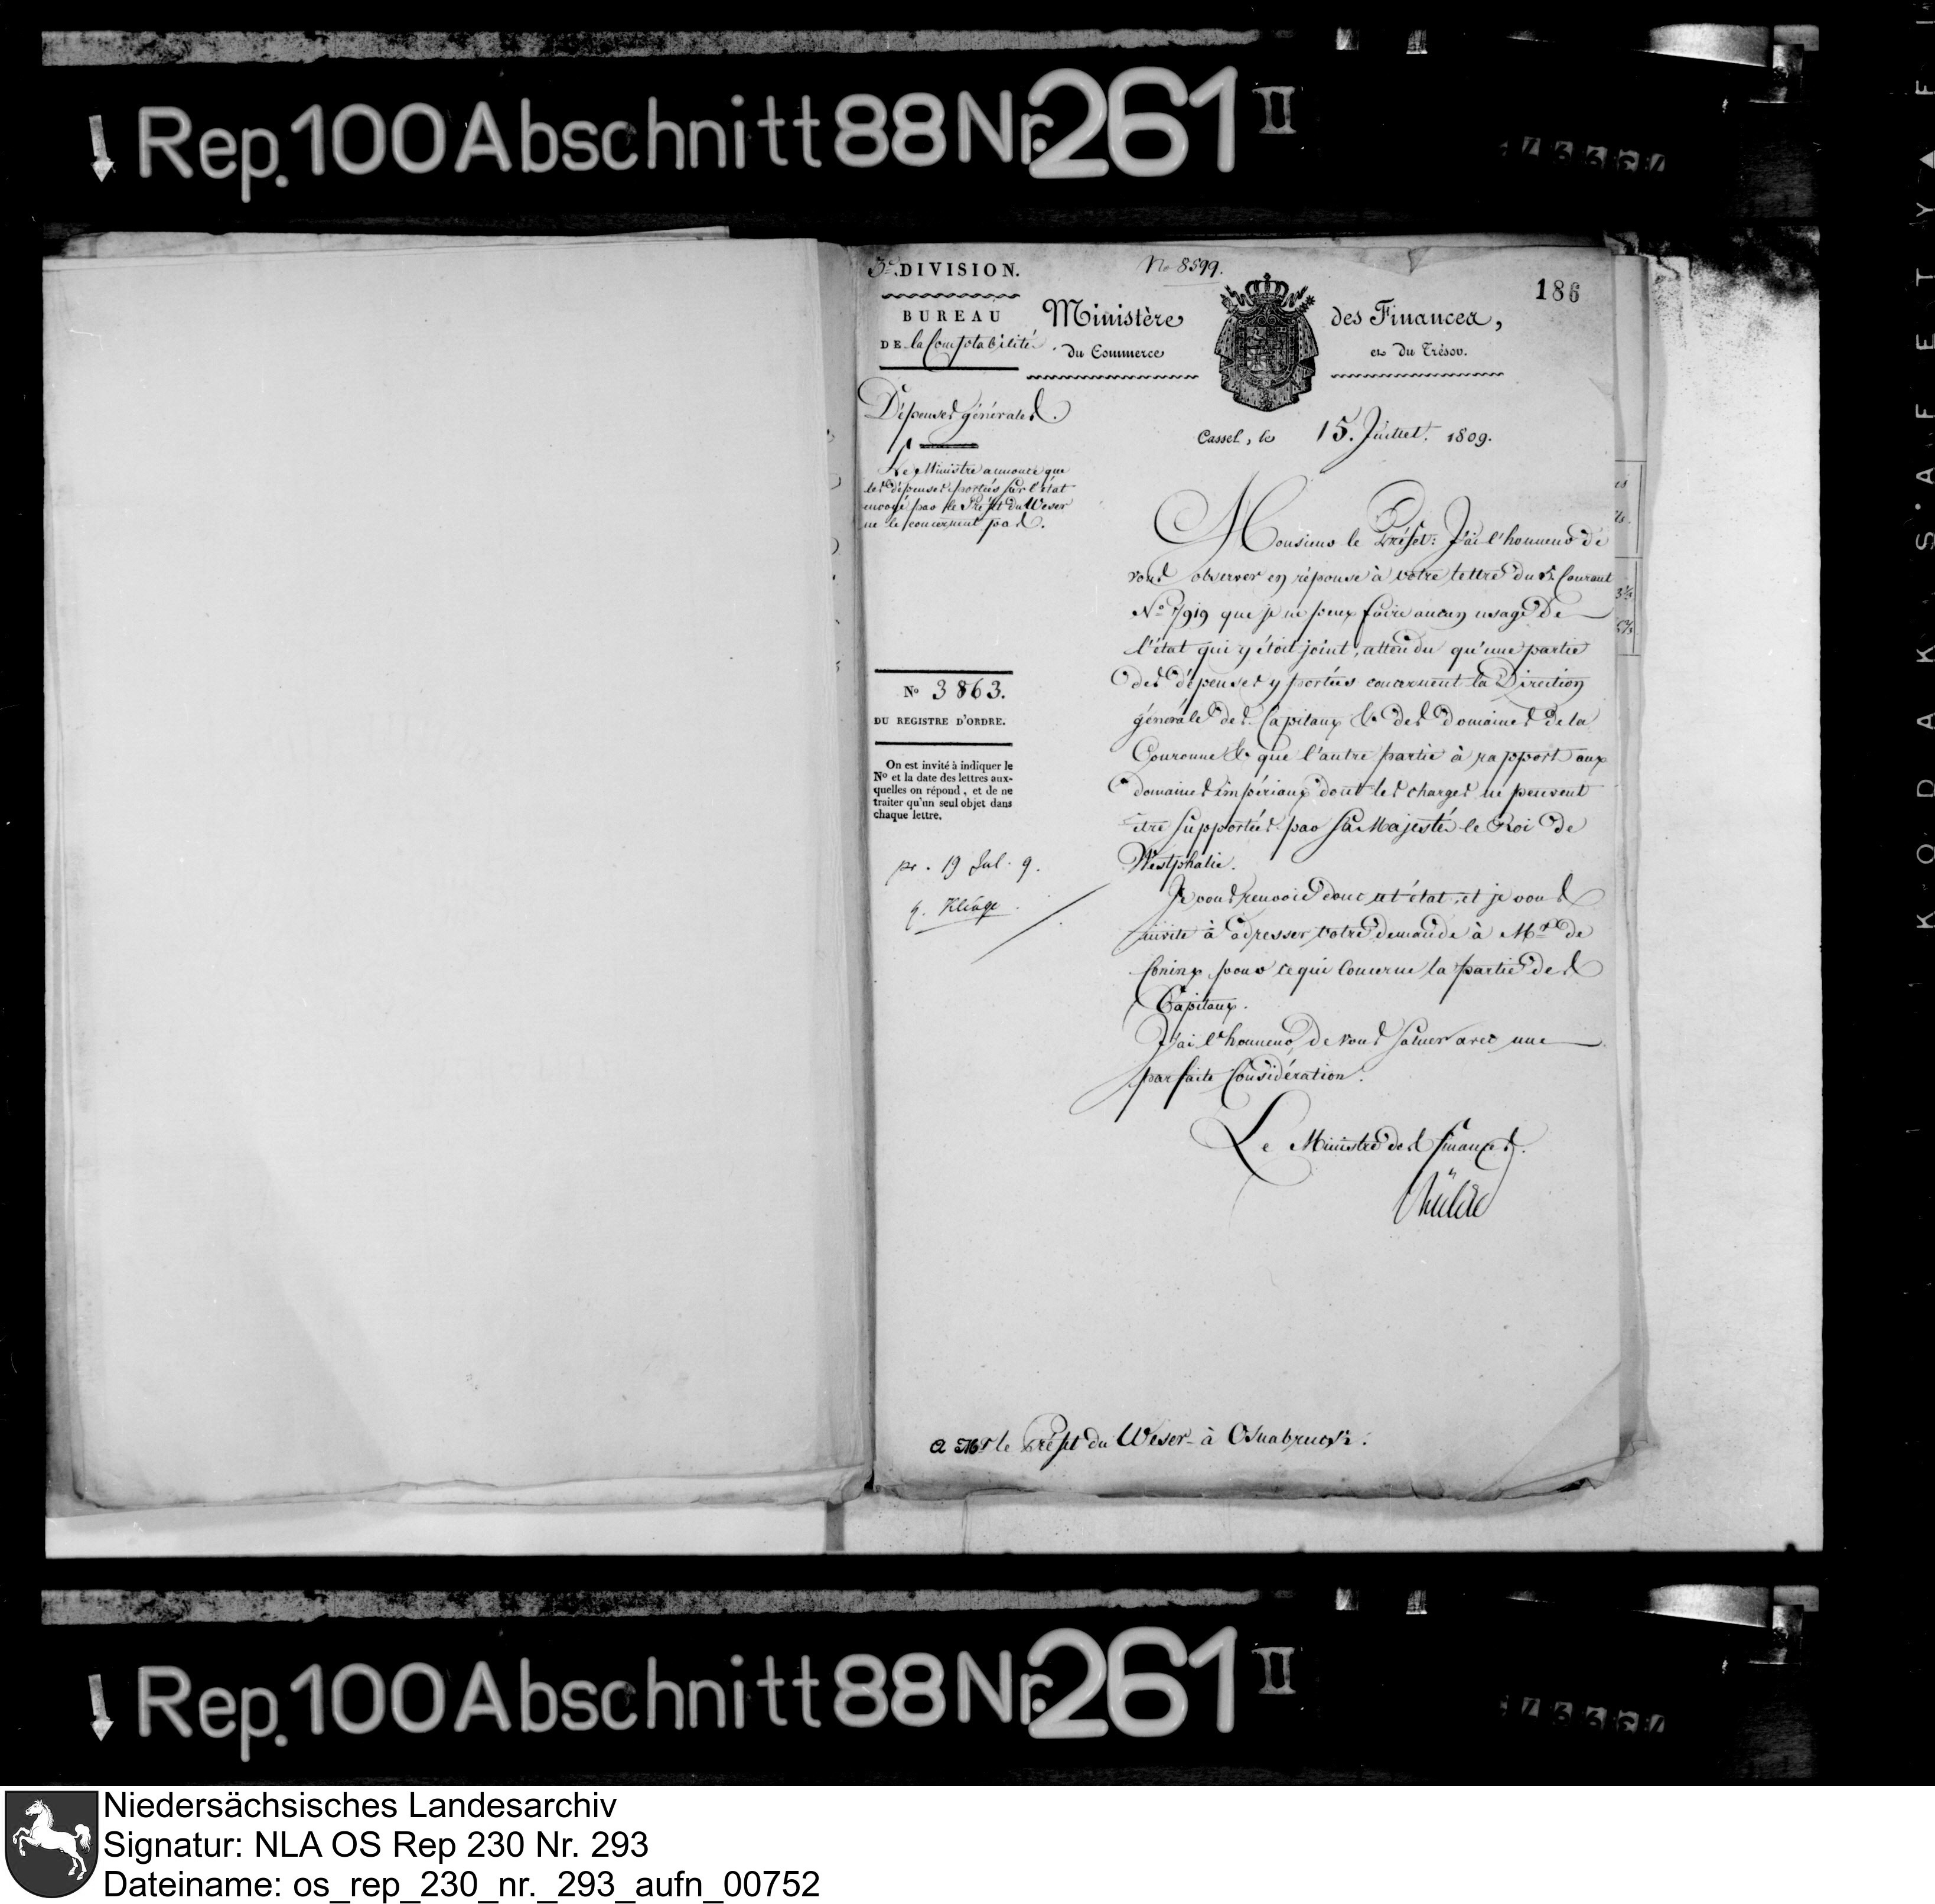 Rep. 100 Abschnitt 88 Nr. 261 II
3e. DIVISION.
No 8599.
186
BUREAU
DE la Comptabilité
Ministère des Finances,
du Commerce et du Trésor.
Dépenses générales.
Le Ministre annonce que
les dépenses portées sur l'état
envoyé par le Préfet du Weser
ne le concernent pas.
Cassel, le 15. Juillet. 1809.
Monsieur le Préfet: J'ai l'honneur de
vous observer en réponse à votre lettre du 5. Courant
No. 7919 que je ne peux faire aucun usage de
l'état qui y étoit joint, attendu qu'une partie
des dépenses y portées concernent la Direction
générale des Capitaux & des domaines de la
Couronne & que l'autre partie à rapport aux
domaines impériaux dont les charges ne peuvent
être supportées par sa Majesté le Roi de
Westphalie.
Je vous renvoie donc cet état, et je vous
invite à adresser votre demande à Mr. de
Coninx pour ce qui concerne la partie des
Capitaux.
J'ai l'honneur de vous saluer avec une
parfaite Considération.
Le Ministre des finances.
Bülow
No 3863.
DU REGISTRE D'ORDRE.
On est invité à indiquer le
No et la date des lettres aux-
quelles on répond, et de ne
traiter qu'un seul objet dans
chaque lettre.
pr. 19 Jul. 9.
Klinge
A Mr le Préfet du Weser à Osnabruck.
Rep. 100 Abschnitt 88 Nr. 261 II
KODAK SAFETY F
Niedersächsisches Landesarchiv
Signatur: NLA OS Rep 230 Nr. 293
Dateiname: os_rep_230_nr._293_aufn_00752